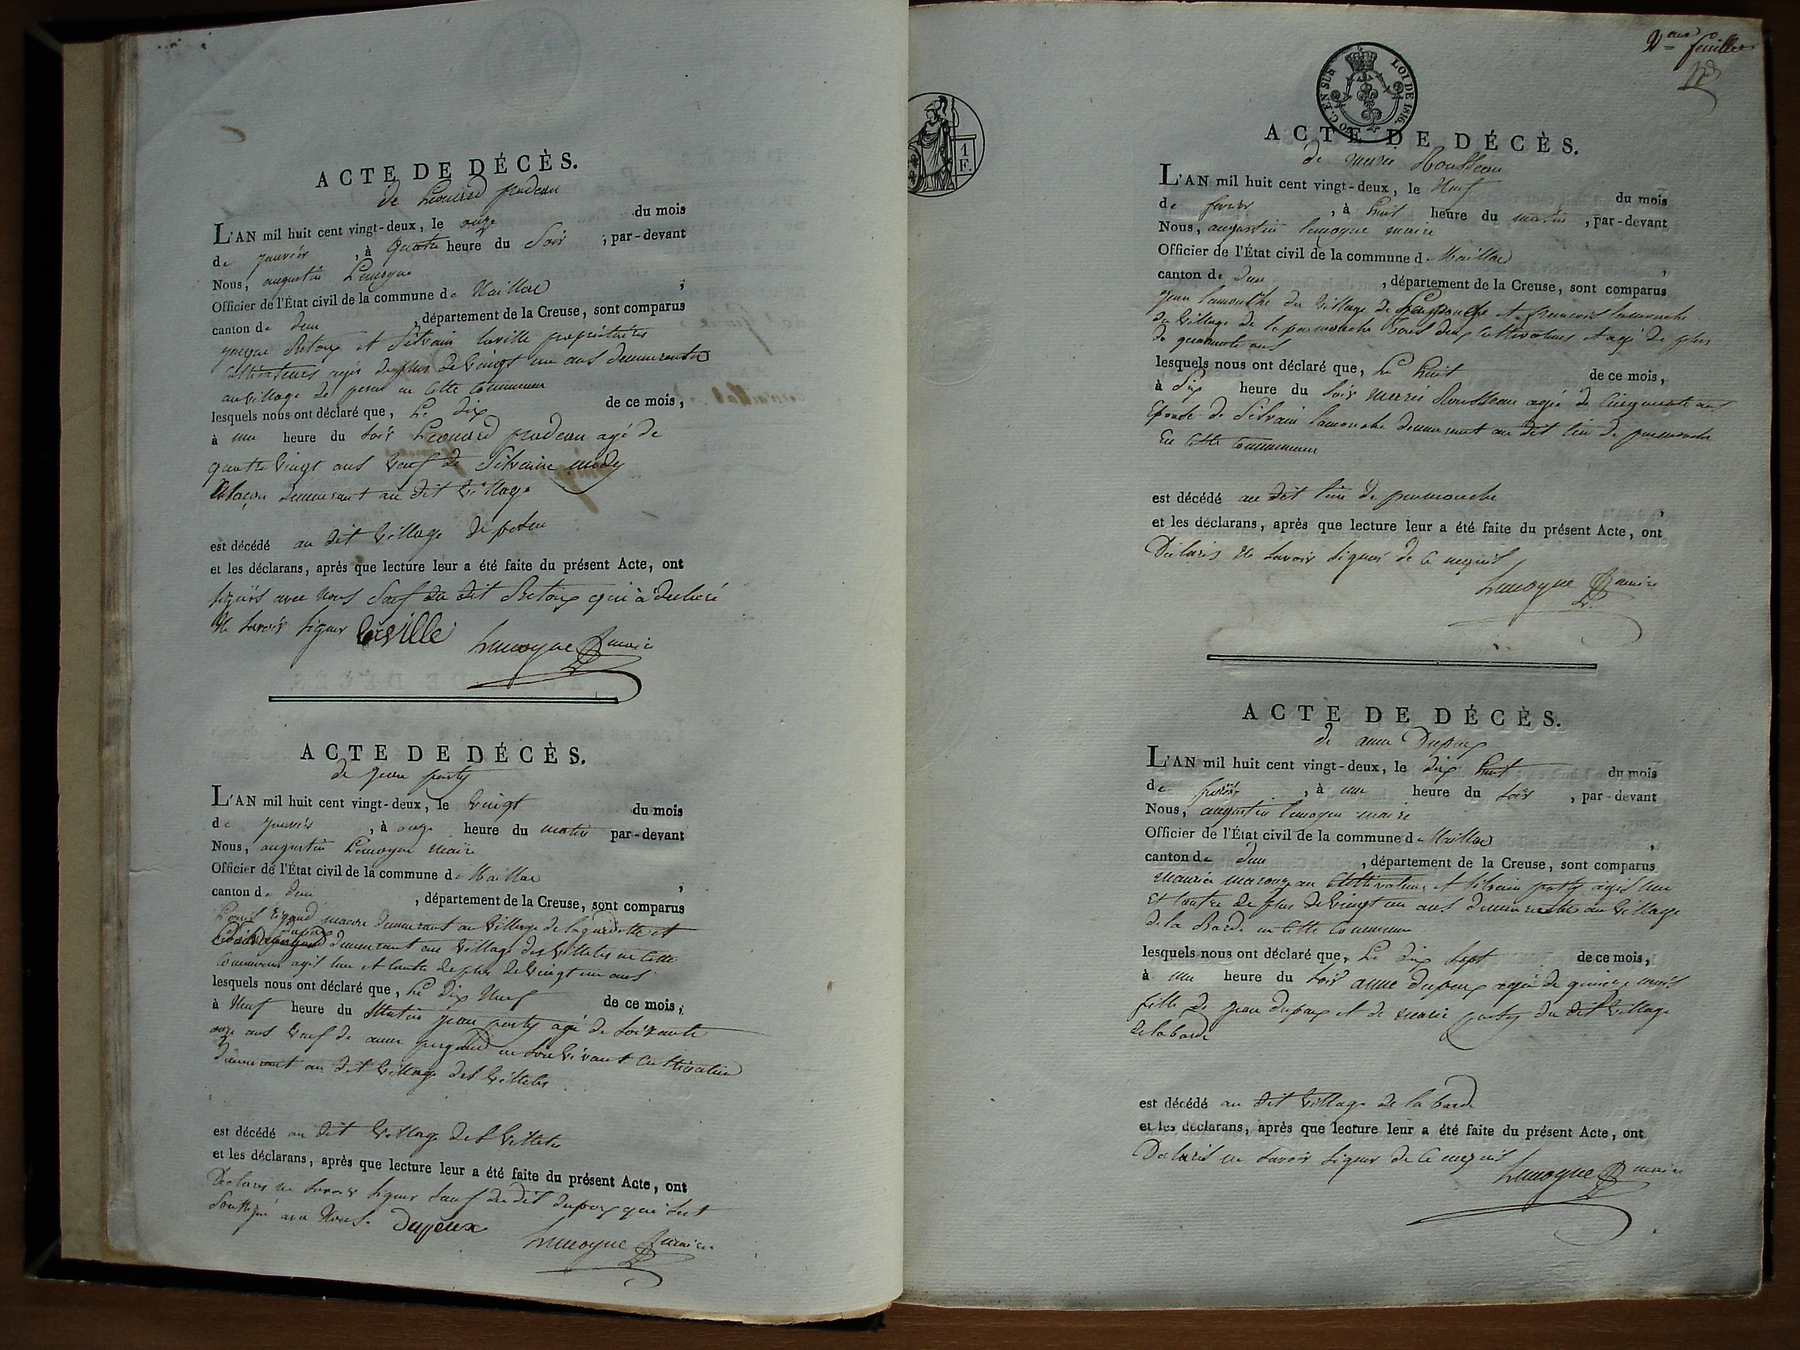 ACTE DE DÉCÈS.
de Léonard pradeau
L'AN mil huit cent vingt-deux, le onze du mois
de janvier, à quatre heure du Soir, par-devant
Nous, augustin Lemoyne
Officier de l'État civil de la commune de Naillac ;
canton de dun, département de la Creuse, sont comparus
et Silvain laville propriétaires
cultivateurs agés de plus de vingt un ans demeurants
au village de en cette commune
lesquels nous ont déclaré que, Le dix de ce mois,
à une heure du soir Léonard pradeau agé de
quatre vingt ans veuf de Silvaine
demeurant au dit village
est décédé au dit village de
et les déclarans, après que lecture leur a été faite du présent Acte, ont
signés avec nous sauf du dit qui à déclaré
ne savoir signer laville Lemoyne maire
ACTE DE DÉCÈS.
de jean party
L'AN mil huit cent vingt-deux, le vingt du mois
de janvier, à onze heure du matin par-devant
Nous, augustin Lemoyne maire
Officier de l'État civil de la commune de Naillac,
canton de dun, département de la Creuse, sont comparus
maçon demeurant au village de et
demeurant au village des villettes en cette
commune agés l'un et l'autre de plus de vingt un ans
lesquels nous ont déclaré que, Le dix neuf de ce mois,
à neuf heure du Matin jean party agé de soixante
onze ans veuf de anne en son vivant cultivateur
demeurant au dit village des villettes
est décédé au dit village des villettes
et les déclarans, après que lecture leur a été faite du présent Acte, ont
Déclarés ne savoir signer sauf du dit dupeux qui s'est
soussigné avec Nous. Dupeux Lemoyne maire
1
F.
2eme feuillet
TIMBRE
LOI DE 1816.
ACTE DE DÉCÈS.
de marie Rousseau
L'AN mil huit cent vingt-deux, le Neuf du mois
de fevrier, à huit heure du matin, par-devant
Nous, augustin lemoyne maire
Officier de l'État civil de la commune de Naillac,
canton de dun, département de la Creuse, sont comparus
jean lamouche du village de et françois lamouche
du village de tous deux cultivateurs et agé de plus
de quarante ans
lesquels nous ont déclaré que, Le huit de ce mois,
à dix heure du soir marie Rousseau agée de cinquante ans
épouse de Silvain lamouche demeurant au dit lieu de
En cette commune
est décédé au dit lieu de
et les déclarans, après que lecture leur a été faite du présent Acte, ont
Déclarés ne savoir signer de ce requis
Lemoyne maire
ACTE DE DÉCÈS.
de anne Dupeux
L'AN mil huit cent vingt-deux, le dix huit du mois
de fevrier, à une heure du soir, par-devant
Nous, augustin lemoyne maire
Officier de l'État civil de la commune de Naillac,
canton de dun, département de la Creuse, sont comparus
cultivateur et silvain party agés l'un
et l'autre de plus de vingt un ans demeurants au village
de la Barde en cette commune
lesquels nous ont déclaré que, Le dix sept de ce mois,
à une heure du soir anne dupeux agée de quinze mois
fille de jean dupeux et de marie party du dit village
de la barde
est décédé au dit village de la barde
et les déclarans, après que lecture leur a été faite du présent Acte, ont
Déclarés ne savoir signer de ce requis Lemoyne maire